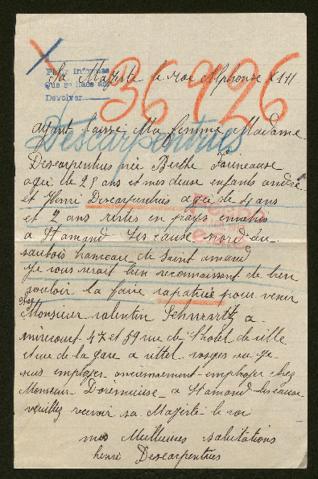 Sa Majesté le roi Alphonse XIII
Para informar
que se hace al
Devolver
36926
Descarpentries
ayant laissé Ma femme Madame
Descarpentries née Berthe
agée de 28 ans et mes deux enfants andré
et Henri Descarpentries agée de 4 ans
et 2 ans restés en pays envahis
a St amand les eaux nord du
hameau de Saint amand
Je vous serait bien reconnaissant de bien
vouloir la faire rapatrier pour venir
chez
Monsieur valentin Schwartz a
mirecourt 47 et 59 rue de l'hotel de ville
et rue de la gare a vittel vosges ou je
suis employer anciennement employer chez
Monsieur a St amand les eaux
veuillez recevoir sa Majesté le roi
mes Meilleures salutations
henri Descarpentries